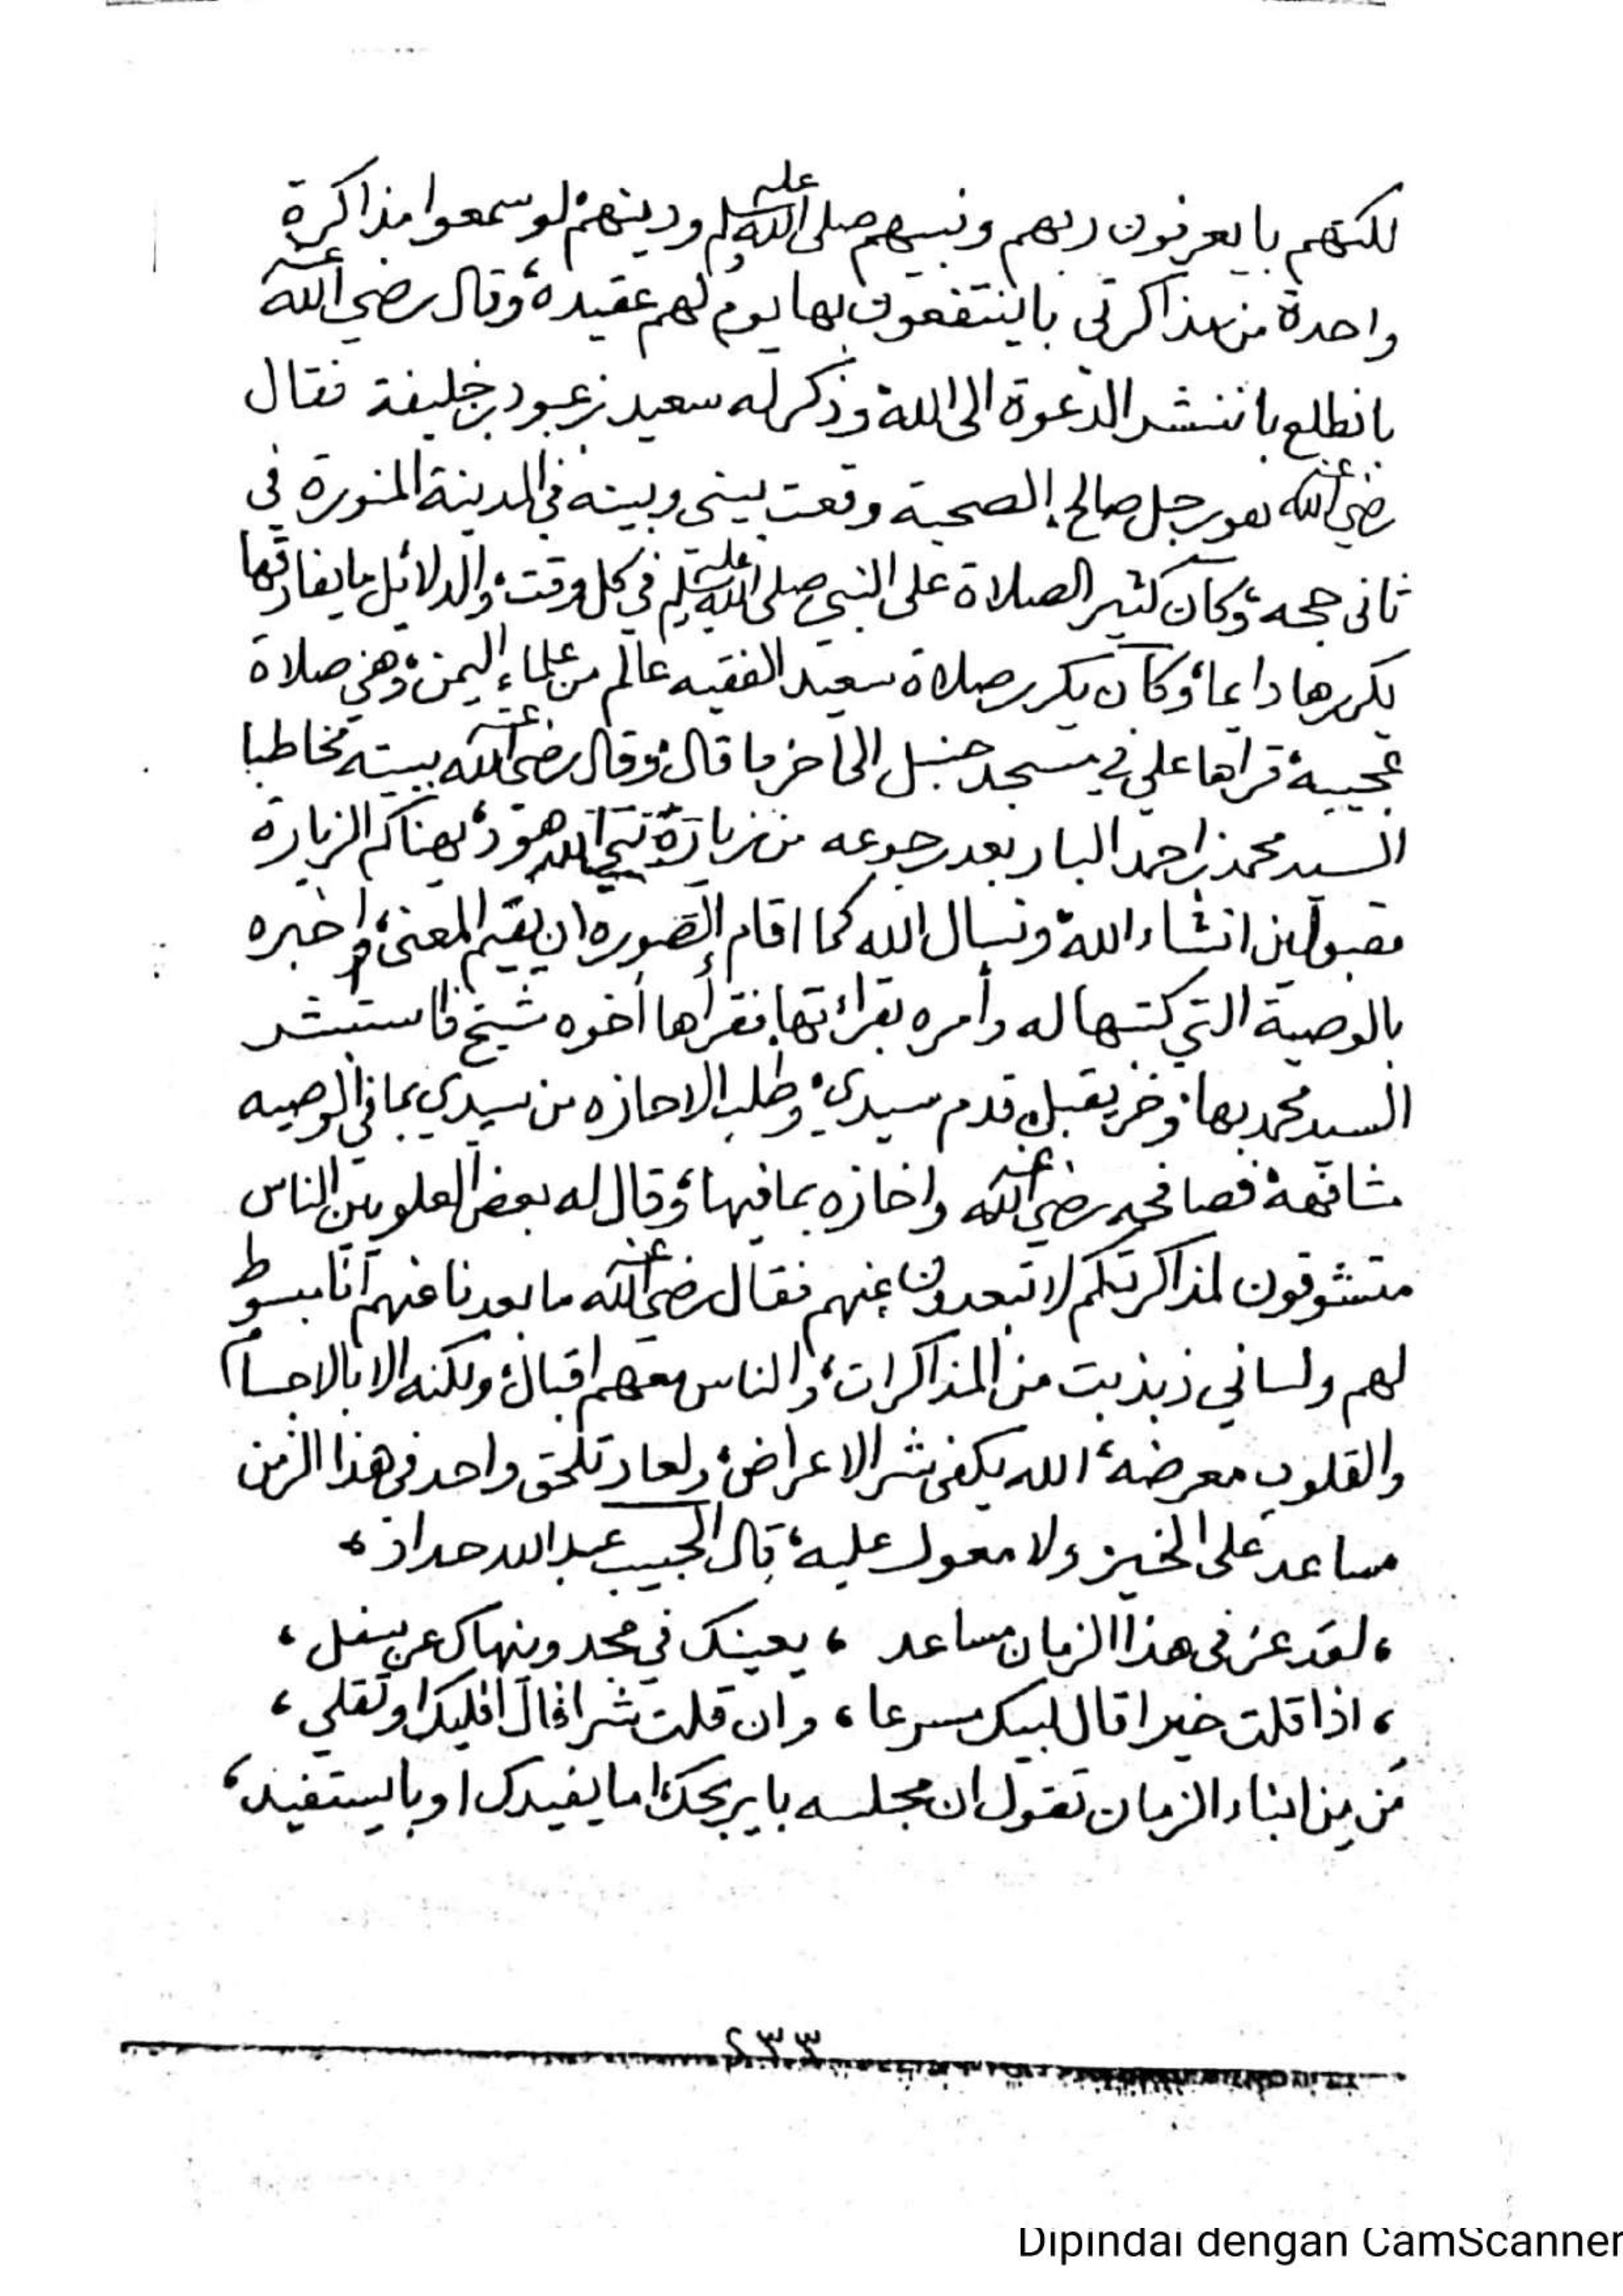 لكنهم با يعرفون ربهم ونبيهم صلى الله عليه وسلم ودينهم، لو سمعوا مذاكرة
واحدة من مذاكرتي باينتفعون بها يوم لهم عقيدة، وقال رضي الله عنه
بانطلع باننشر الدعوة الى الله، وذكر له سعيد بن عبود بن خليفة فقال
رضي الله عنه هو رجل صالح، الصحبة وقعت بيني وبينه في المدينة المنورة في
ثاني حجه، وكان كثير الصلاة على النبي صلى الله عليه وسلم في كل وقت، والدلائل ما يفارقها
يكررها دايما، وكان يكرر صلاة سعيد الفقيه عالم من علماء اليمن، وهي صلاة
عجيبة، قراها علي في مسجد حنبل الى اخر ما قال، وقال رضي الله عنه ببيته مخاطبا
السيد محمد بن احمد البار بعد رجوعه من زيارة نبي الله هود، يهناكم الزيارة
مقبولين انشاء الله، ونسال الله كما اقام الصوره ان يقيم المعنى، واخبره
بالوصية التي كتبها له وأمره بقرائتها، فقرأها أخوه شيخ فاستبشر
السيد محمد بها، وخر يقبل قدم سيدي، وطلب الاجازه من سيدي بما في الوصيه
مشافهة، فصافحه رضي الله عنه واجازه بما فيها، وقال له بعض العلويين الناس
متشوقون لمذاكرتكم لا تبعدون عنهم فقال رضي الله عنه ما بعدنا عنهم أنا مبسوط
لهم ولساني ذبذبت من المذاكرات، والناس معهم اقبال، ولكنه الا بالاجسام
والقلوب معرضه، الله يكفي شر الاعراض، ولعاد تلحق واحد في هذا الزمن
مساعد على الخير ولا معول عليه، قال الحبيب عبدالله حداد،
، لقد عز في هذا الزمان مساعد ، يعينك في مجد وينهاك عن سفل ،
، اذا قلت خيرا قال لبيك مسرعا ، وان قلت شرا قال اقليك او تقلي ،
من من ابناء الزمان تقول ان مجلسه با يربحك، اما يفيدك او بايستفيد،
٢٣٣
Dipindai dengan CamScanner